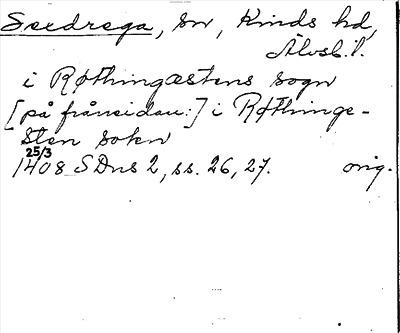 Seedrega, sn, Kinds hd,
Älvsb. l.
i Røthingæstens sogn
[på frånsidan:] i Røthinge-
sten sokn
25/3
1408 SDns 2, ss. 26, 27. orig.